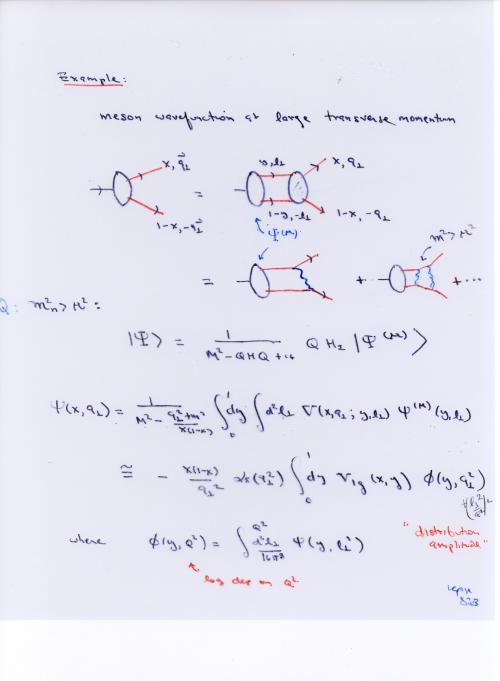 Example:
meson wavefunction at large transverse momentum
x, q⃗⊥ = y, l⊥ x, q⊥
1-x, -q⃗⊥ 1-y, -l⊥ 1-x, -q⊥
ψ(M)
m² > M²
= + ... + ...
Q: m²ₙ > M² :
|Ψ> = 1 / (M² - QHQ + iε) Q H_I |Ψ^(M)>
ψ(x, q⊥) = 1 / (M² - (q⊥² + m²) / (x(1-x))) ∫₀¹ dy ∫ d²l⊥ V(x, q⊥; y, l⊥) ψ^(M)(y, l⊥)
≅ - x(1-x) / q⊥² αs(q⊥²) ∫₀¹ dy V_1g(x, y) φ(y, q⊥²)
where φ(y, Q²) = ∫^Q² d²l⊥ / 16π³ ψ(y, l⊥)
"distribution
amplitude"
log dep on Q²